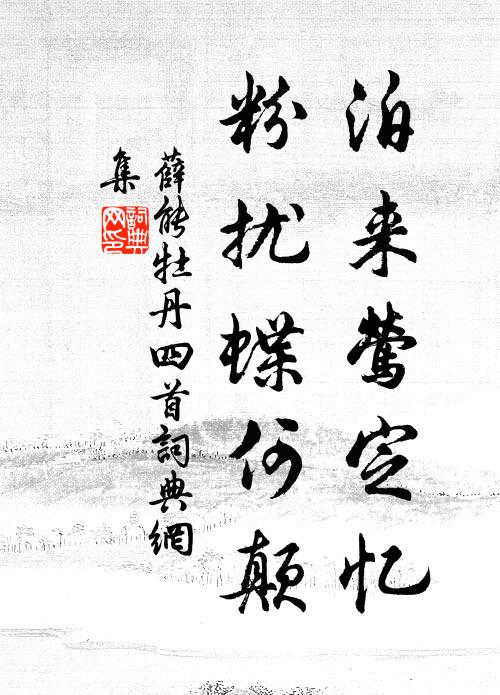 泊来莺定忆
粉扰蝶何颠
薛能牡丹四首詞典網
集
詞典网印